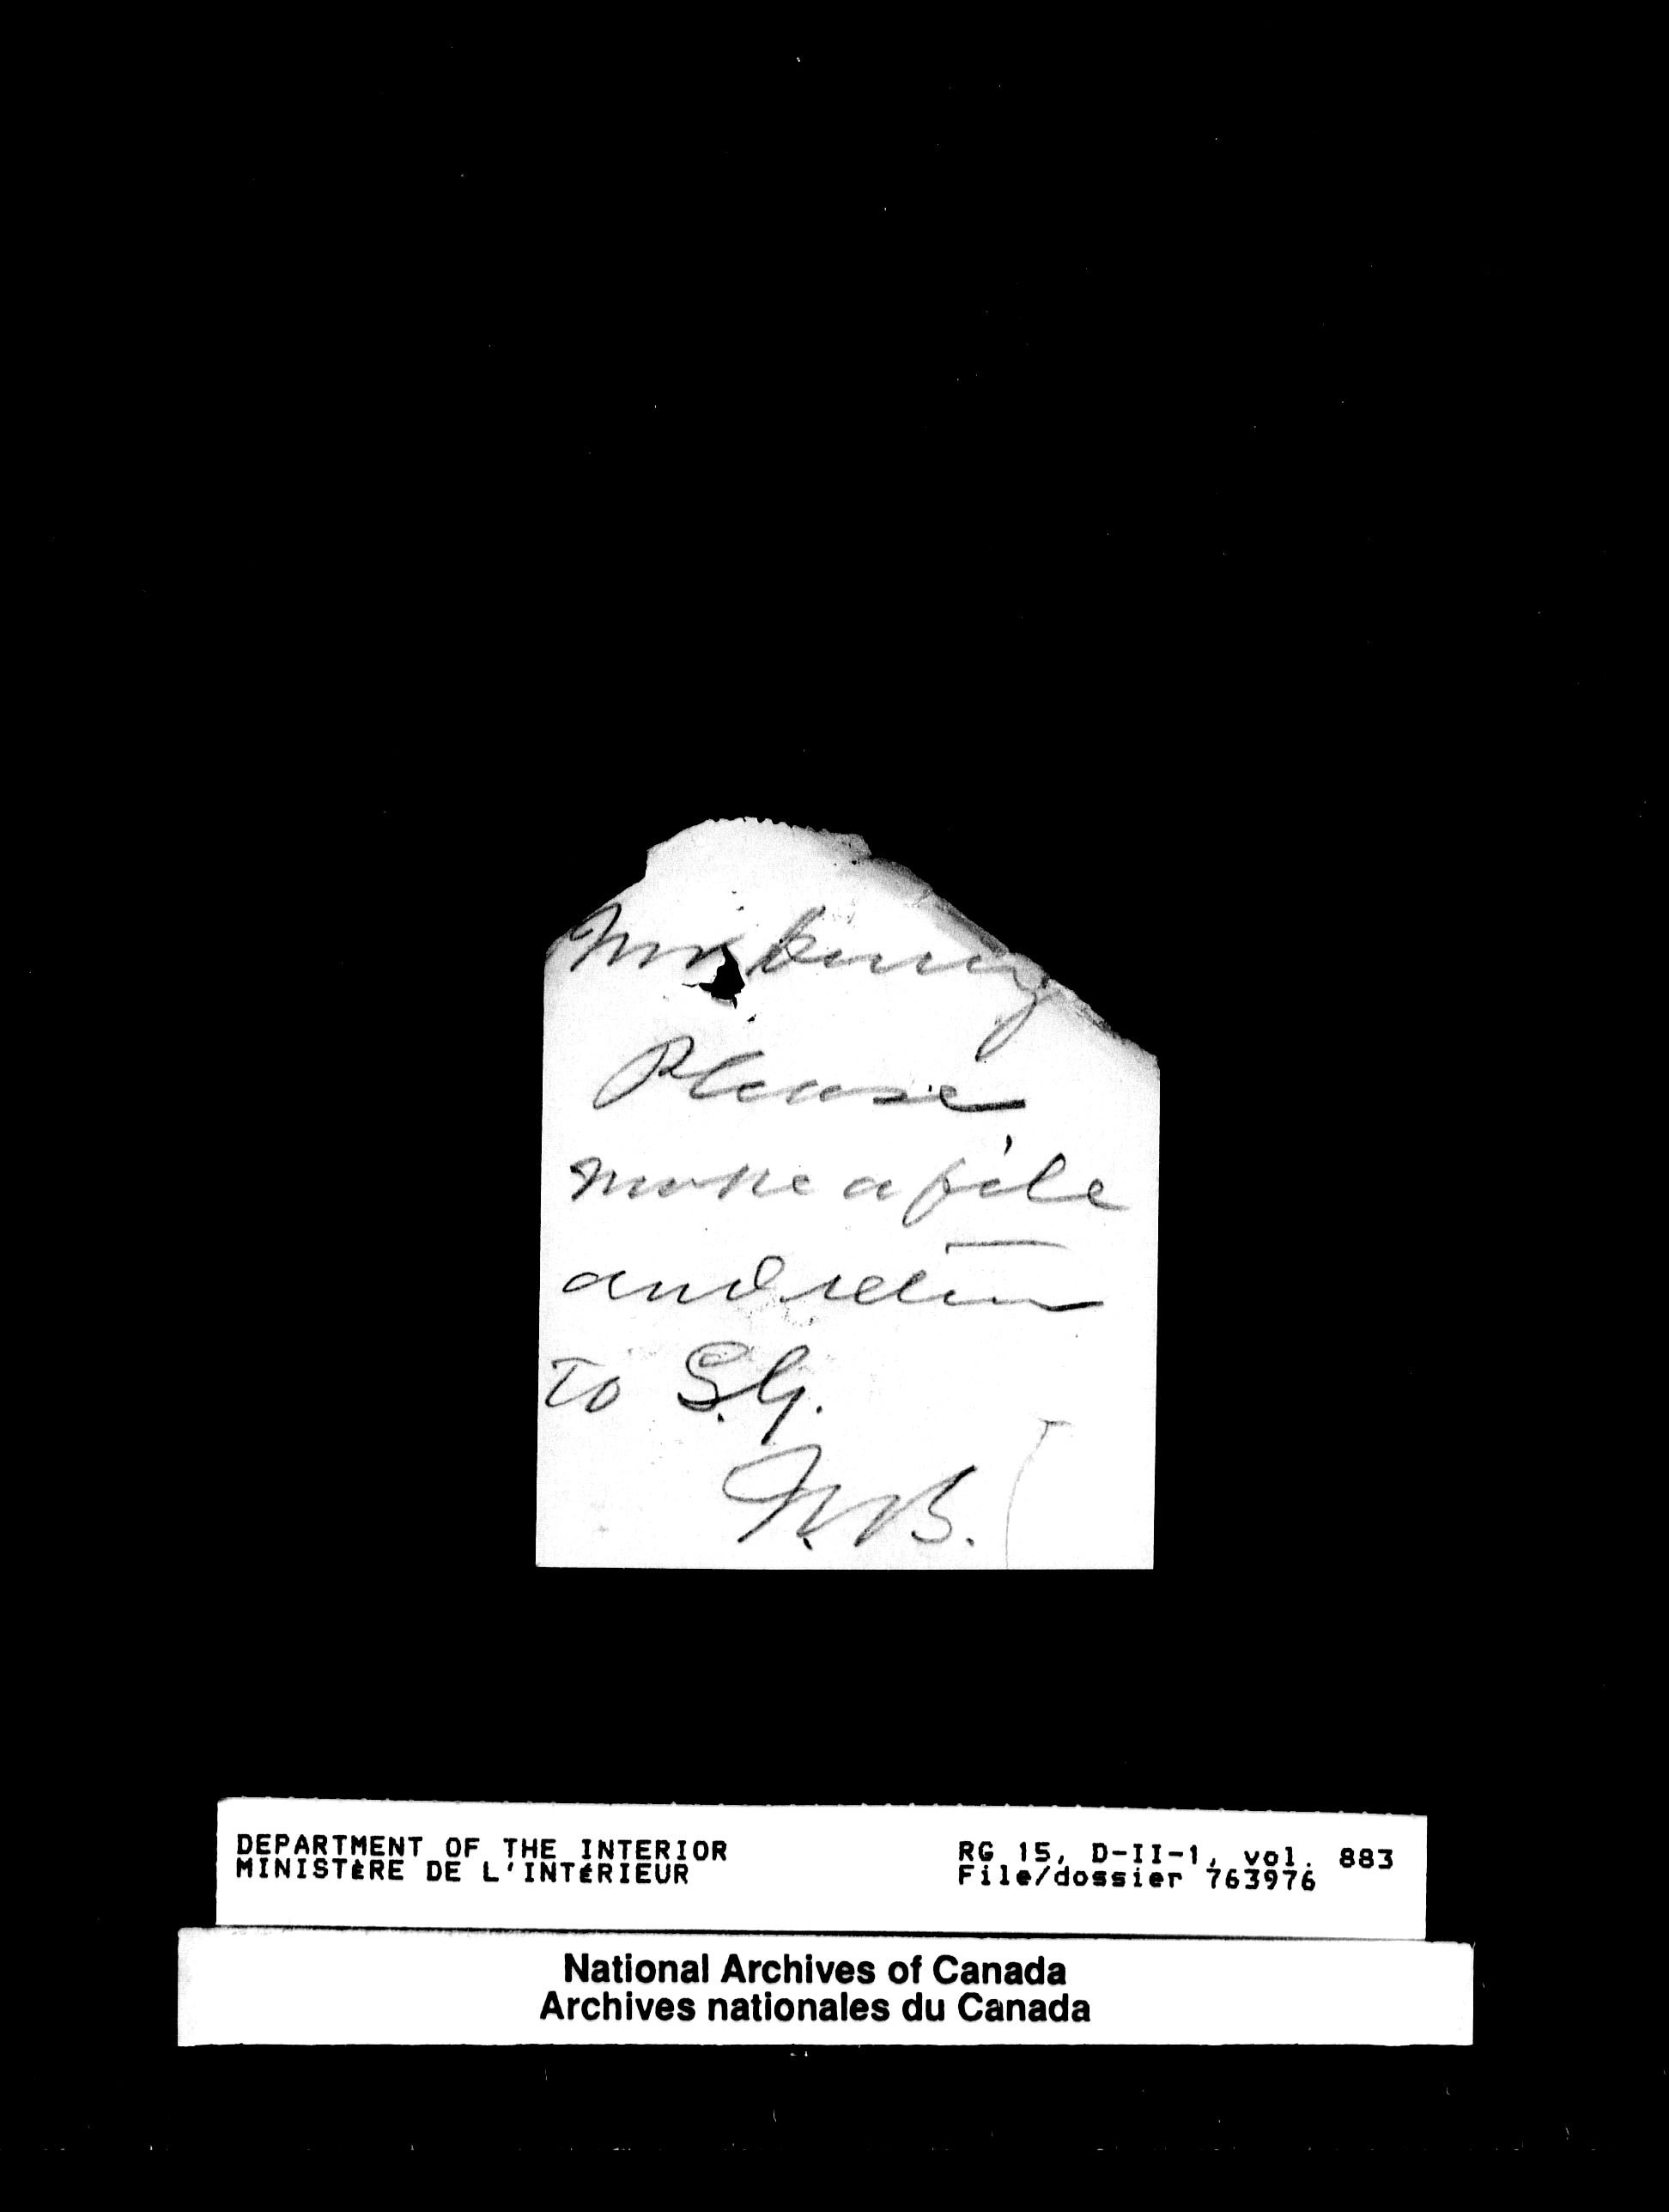 Mr Kenny
Please
make a file
and return
To S.G.
N.B.
DEPARTMENT OF THE INTERIOR
MINISTÈRE DE L'INTÉRIEUR
RG 15, D-II-1, vol. 883
File/dossier 763976
National Archives of Canada
Archives nationales du Canada